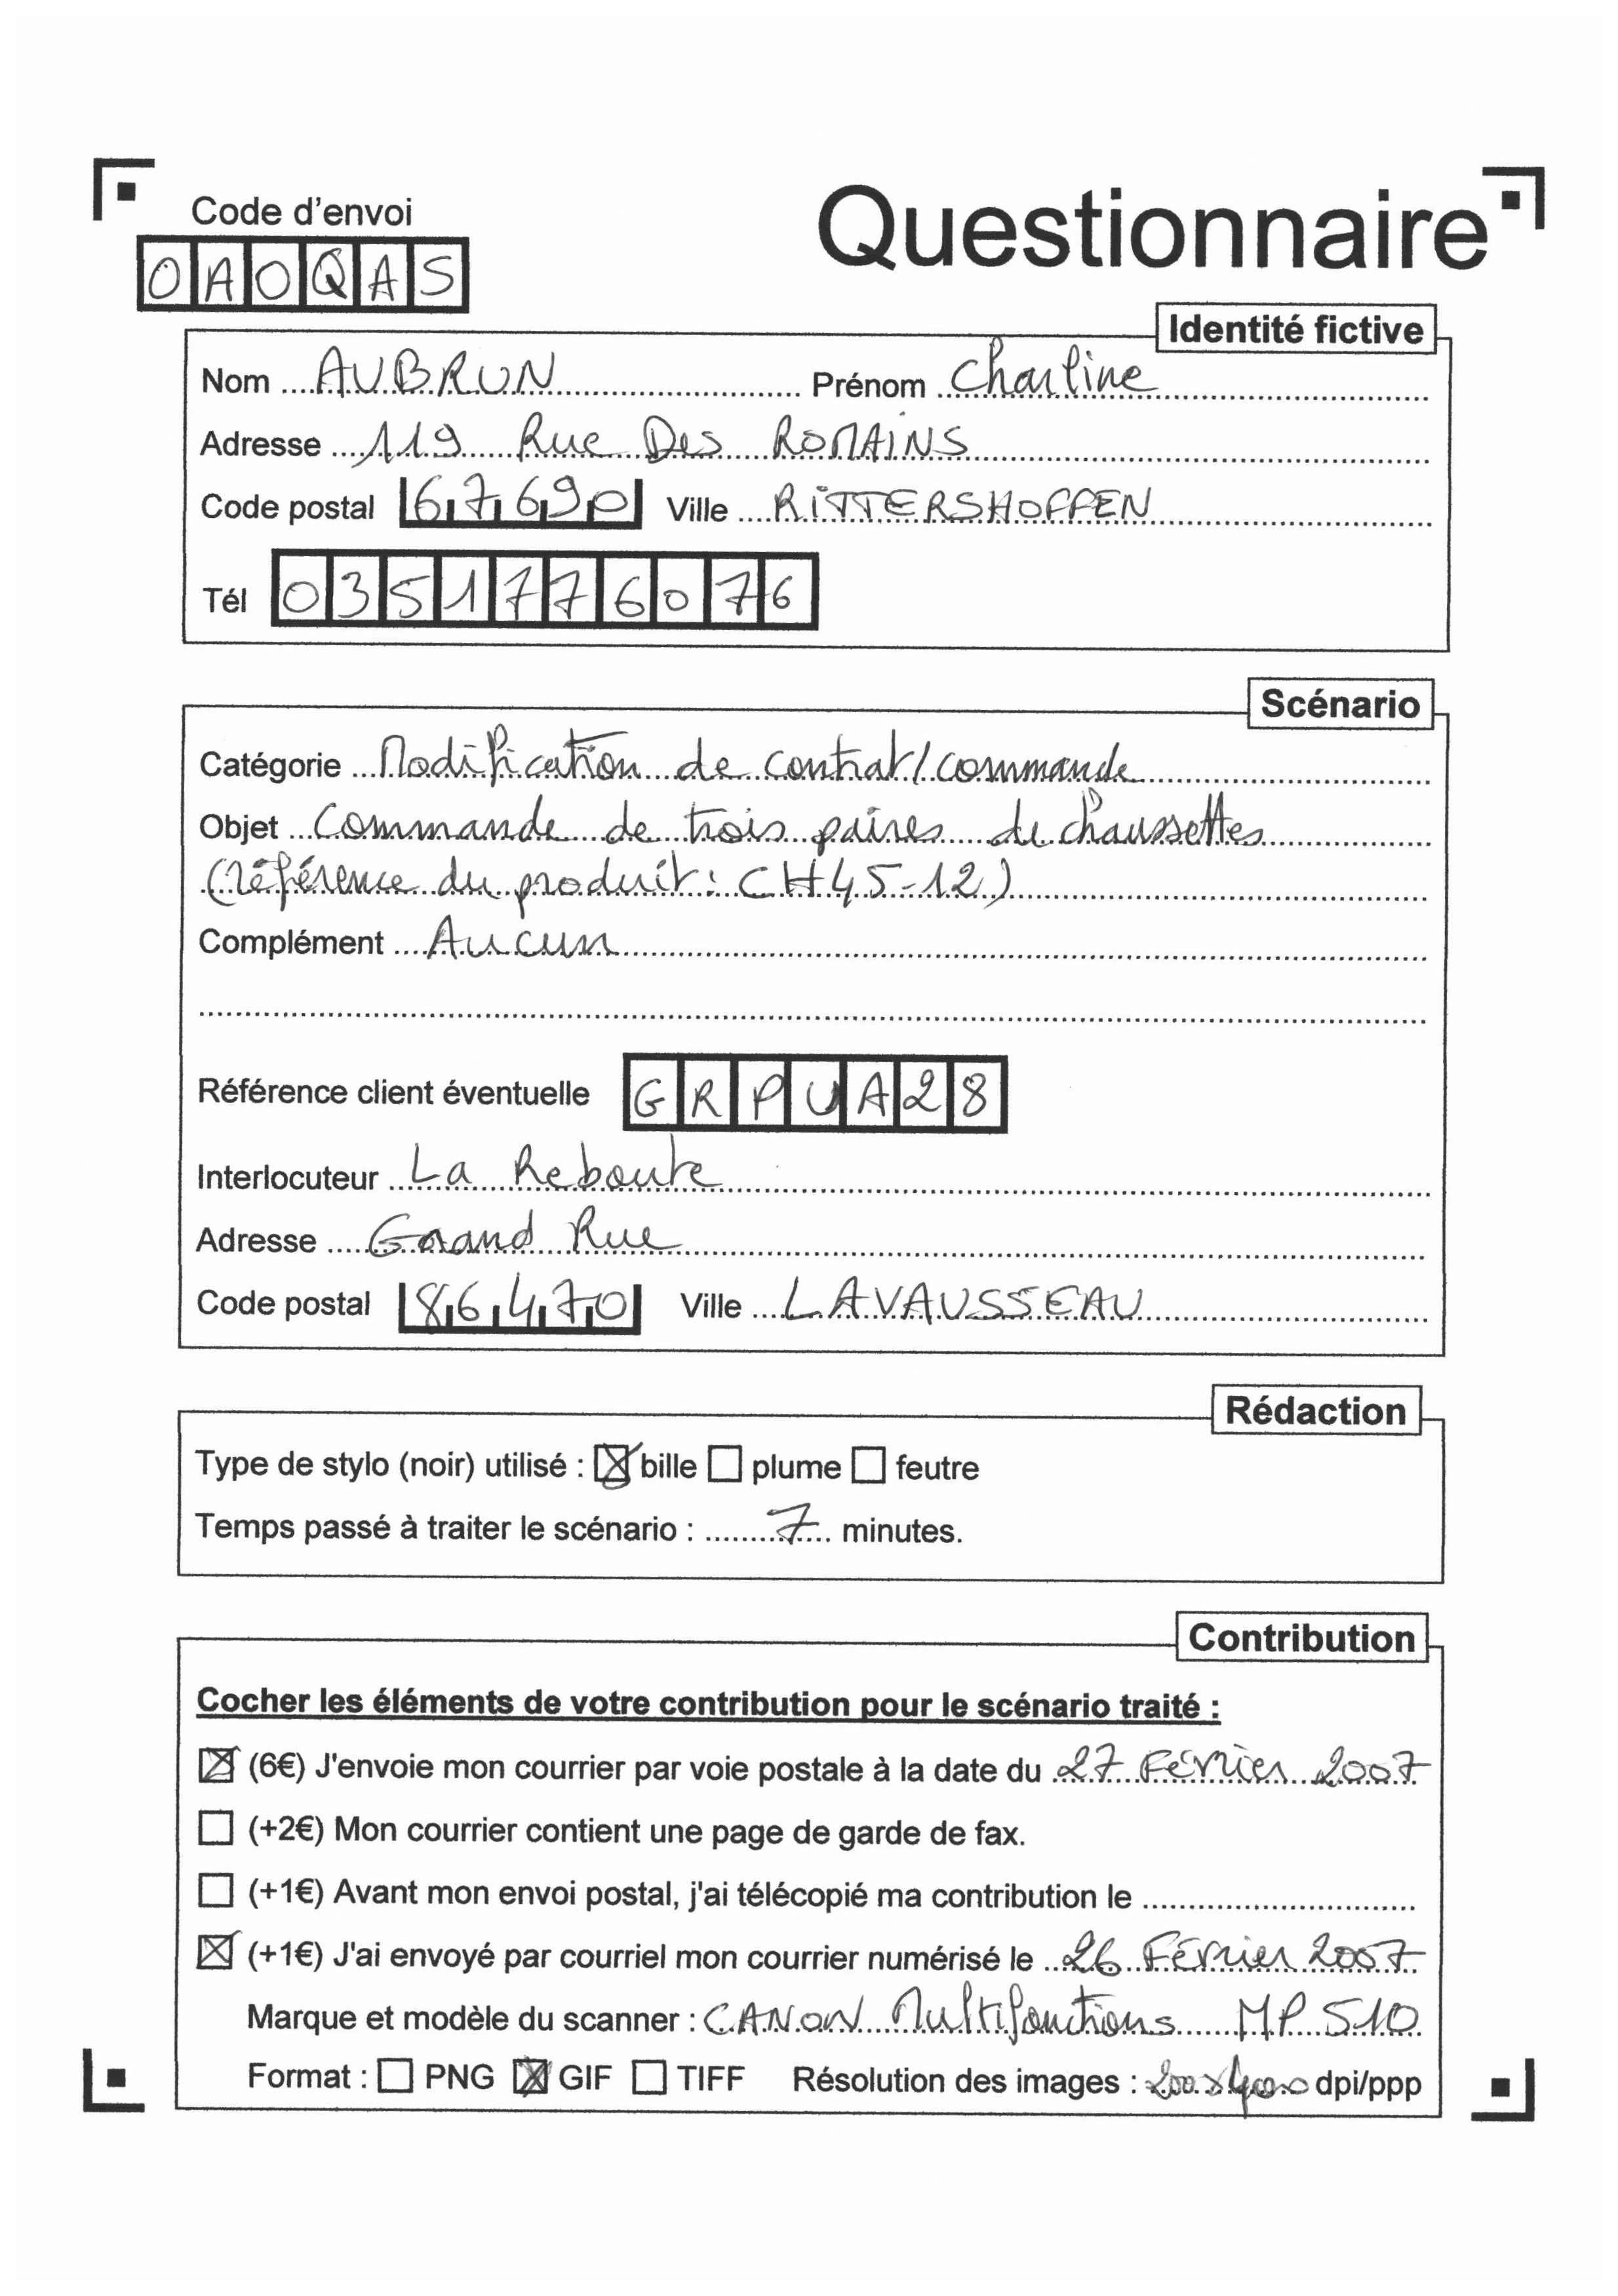 Questionnaire
Code d'envoi
OAOQAS
Identité fictive
Nom AUBRUN Prénom Charline
Adresse 119 Rue Des ROMAINS
Code postal 67690 Ville RITTERSHOFFEN
Tél 0351776076
Scénario
Catégorie Modification de contrat/commande
Objet Commande de trois paires de chaussettes
(référence du produit : CH45-12)
Complément Aucun
Référence client éventuelle GRPUA28
Interlocuteur La Reboute
Adresse Grand Rue
Code postal 86470 Ville LAVAUSSEAU
Rédaction
Type de stylo (noir) utilisé : bille plume feutre
Temps passé à traiter le scénario : 7 minutes.
Contribution
Cocher les éléments de votre contribution pour le scénario traité :
(6€) J'envoie mon courrier par voie postale à la date du 27 Février 2007
(+2€) Mon courrier contient une page de garde de fax.
(+1€) Avant mon envoi postal, j'ai télécopié ma contribution le
(+1€) J'ai envoyé par courriel mon courrier numérisé le 26 Février 2007
Marque et modèle du scanner : CANON Multifonctions MP 510
Format : PNG GIF TIFF Résolution des images : dpi/ppp